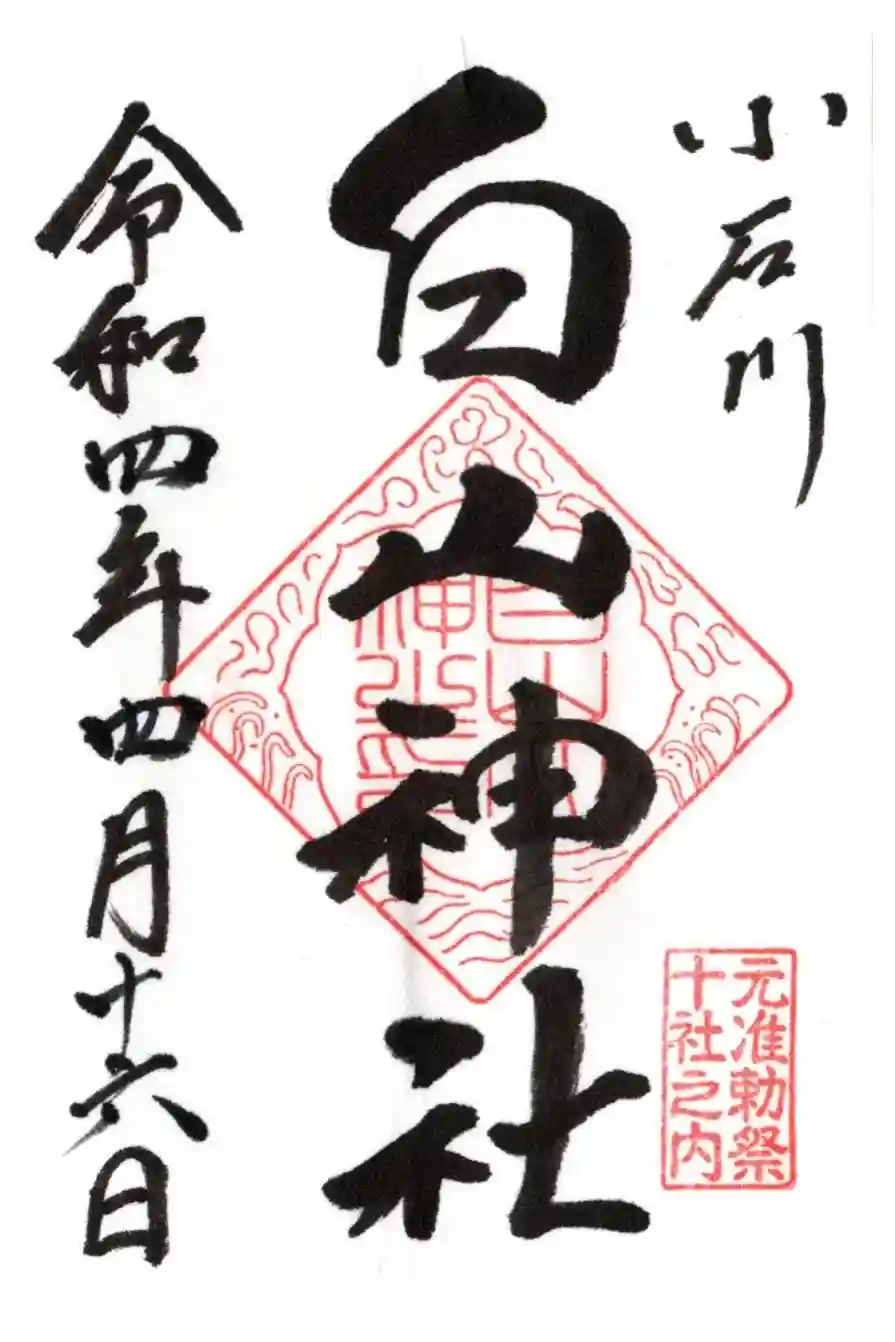 小石川
白山神社
令和四年四月十六日
元准勅祭
十社之内